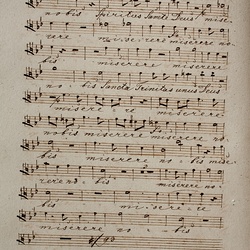 nobis Spiritus Sancte Deus mise-
rere miserere miserere no-
bis miserere miserere
no - bis Sancta Trinitas unus Deus
miserere miserere
nobis miserere miserere no-
bis miserere no - bis mise-
rere no - bis miserere no-
bis miserere
miserere no - - bis